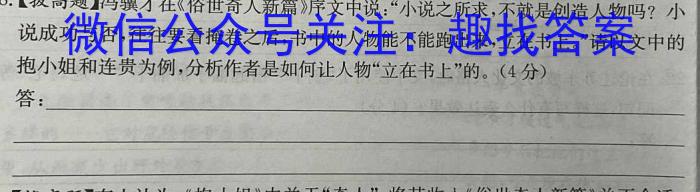 【拔高题】冯骥才在《俗世奇人新篇》序文中说:“小说之所求,不就是创造人物吗?小
说成功与否,往往要看掩卷之后,书中的人物能不能跑出来,立在书上。”请以文中的
微信公众号关注:趣找答案
抱小姐和连贵为例,分析作者是如何让人物“立在书上”的。(4分)
答: